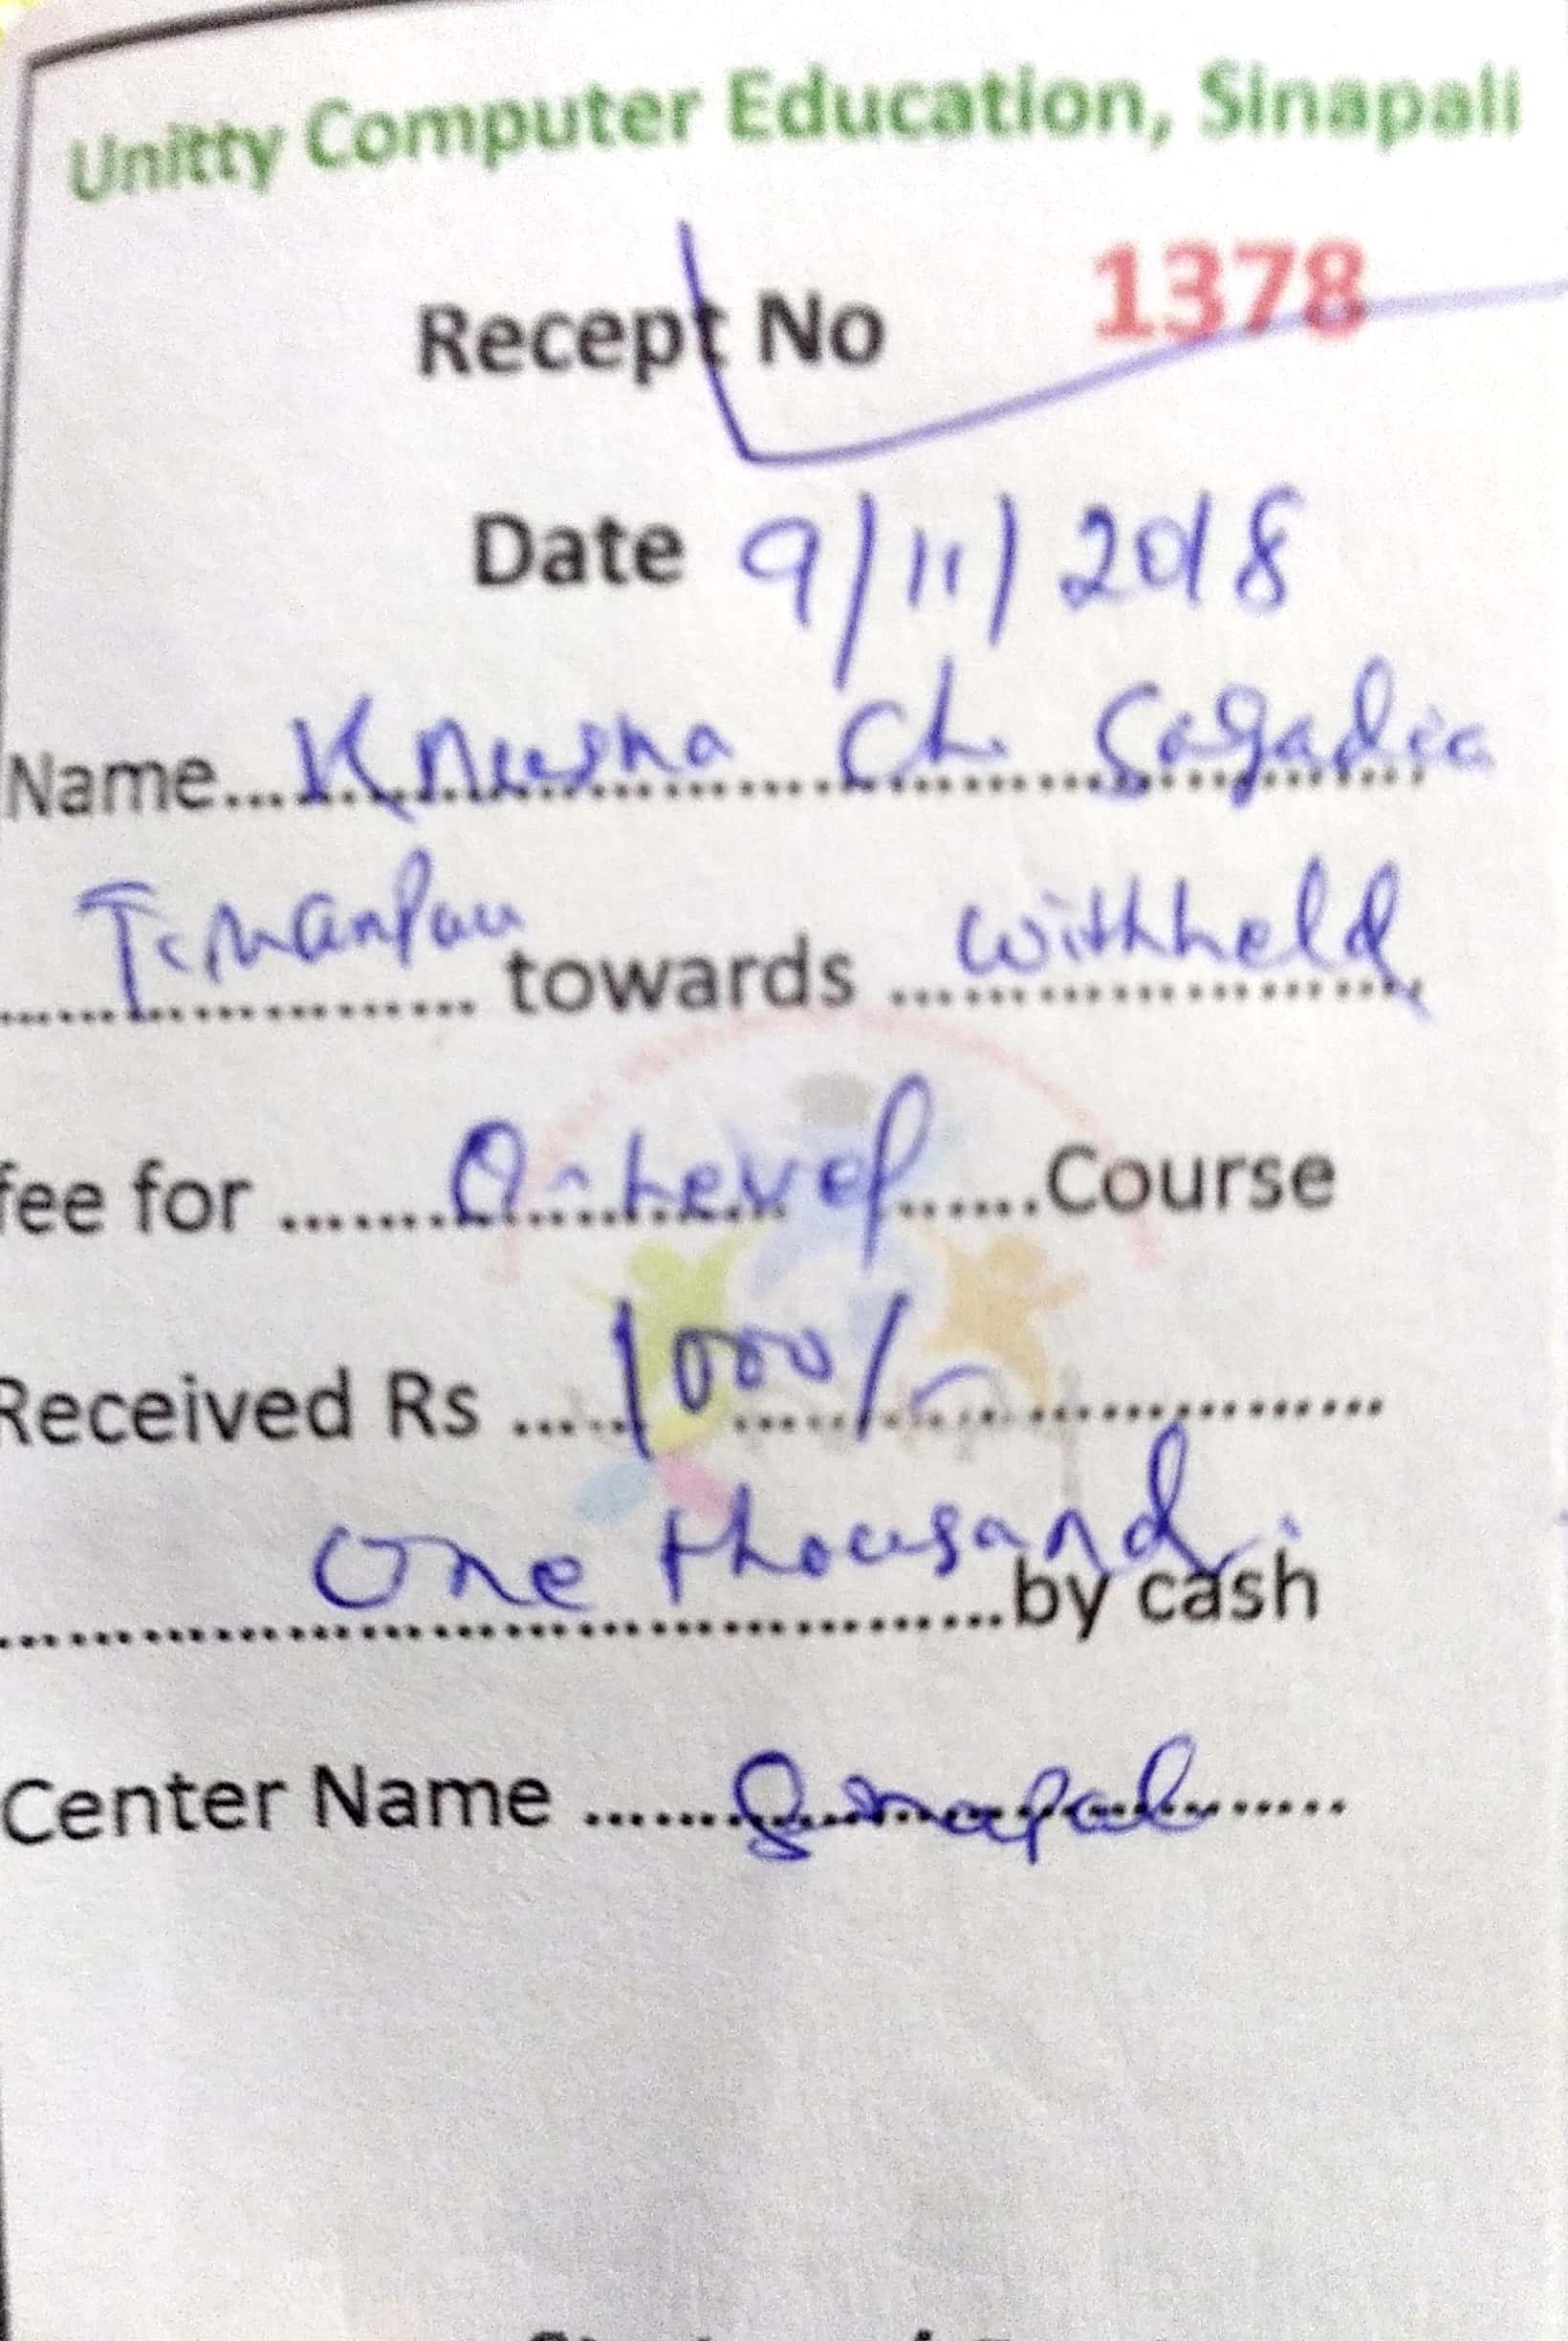 Unitty Computer Education, Sinapali
Recept No 1378
Date 9/11/2018
Name... Krushna Ch. Sagadia
towards withheld
fee for ...... O-Level ......Course
Received Rs ..... 1000/- ......
One thousand. by cash
Center Name ...... Sinapali ......